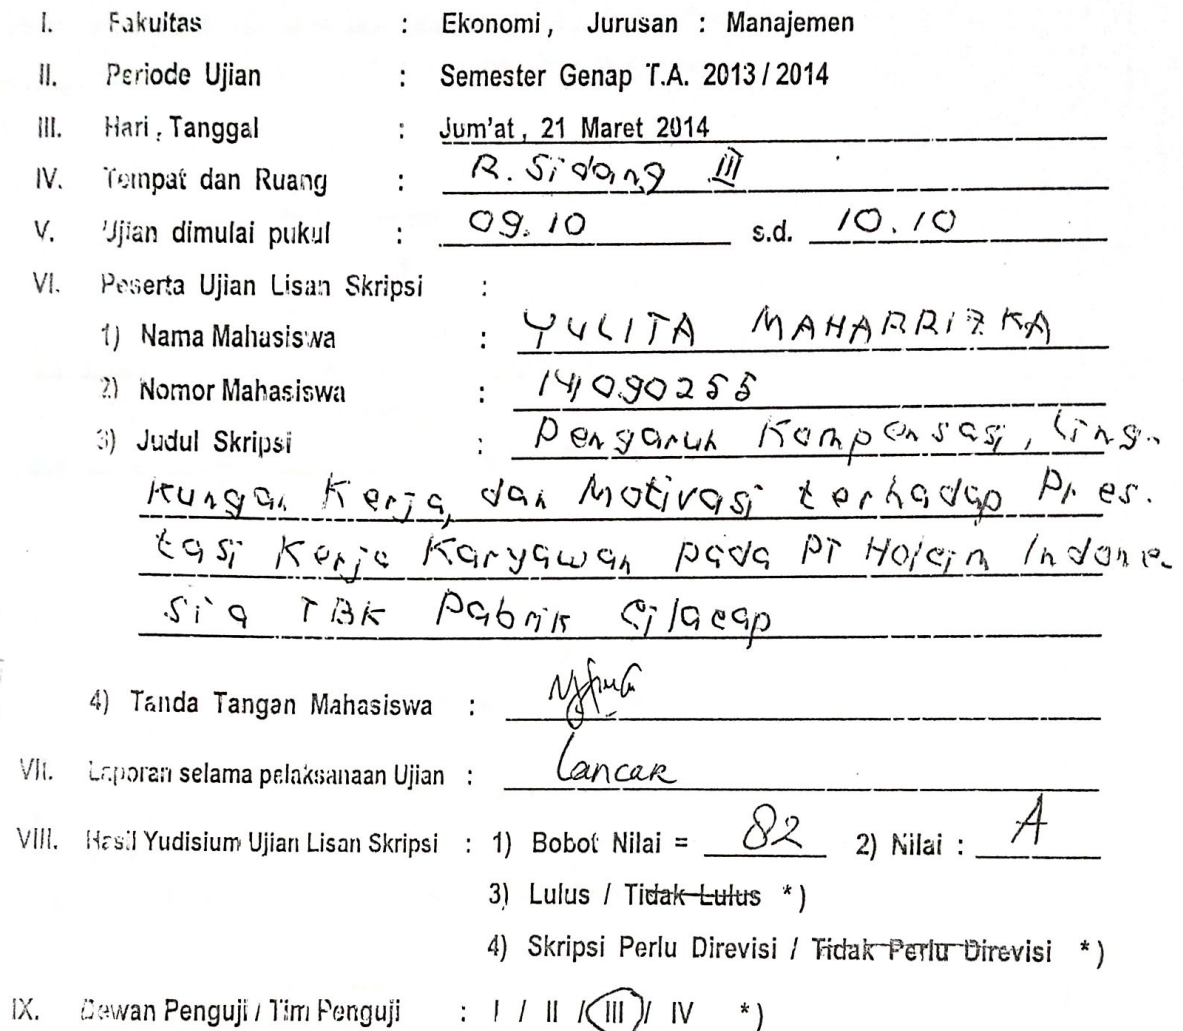 I. Fakultas : Ekonomi, Jurusan : Manajemen
II. Periode Ujian : Semester Genap T.A. 2013/2014
III. Hari, Tanggal : Jum'at, 21 Maret 2014
IV. Tempat dan Ruang : R. Sidang III
V. Ujian dimulai pukul : 09.10 s.d. 10.10
VI. Peserta Ujian Lisan Skripsi :
1) Nama Mahasiswa : YULITA MAHARRIZKA
2) Nomor Mahasiswa : 14090255
3) Judul Skripsi : Pengaruh Kompensasi, Ling-
kungan Kerja, dan Motivasi terhadap Pres-
tasi Kerja Karyawan pada PT Holcim Indone-
sia TBK Pabrik Cilacap
4) Tanda Tangan Mahasiswa :
VII. Laporan selama pelaksanaan Ujian : Lancar
VIII. Hasil Yudisium Ujian Lisan Skripsi : 1) Bobot Nilai = 82 2) Nilai : A
3) Lulus / Tidak Lulus *)
4) Skripsi Perlu Direvisi / Tidak Perlu Direvisi *)
IX. Dewan Penguji / Tim Penguji : I / II / III / IV *)